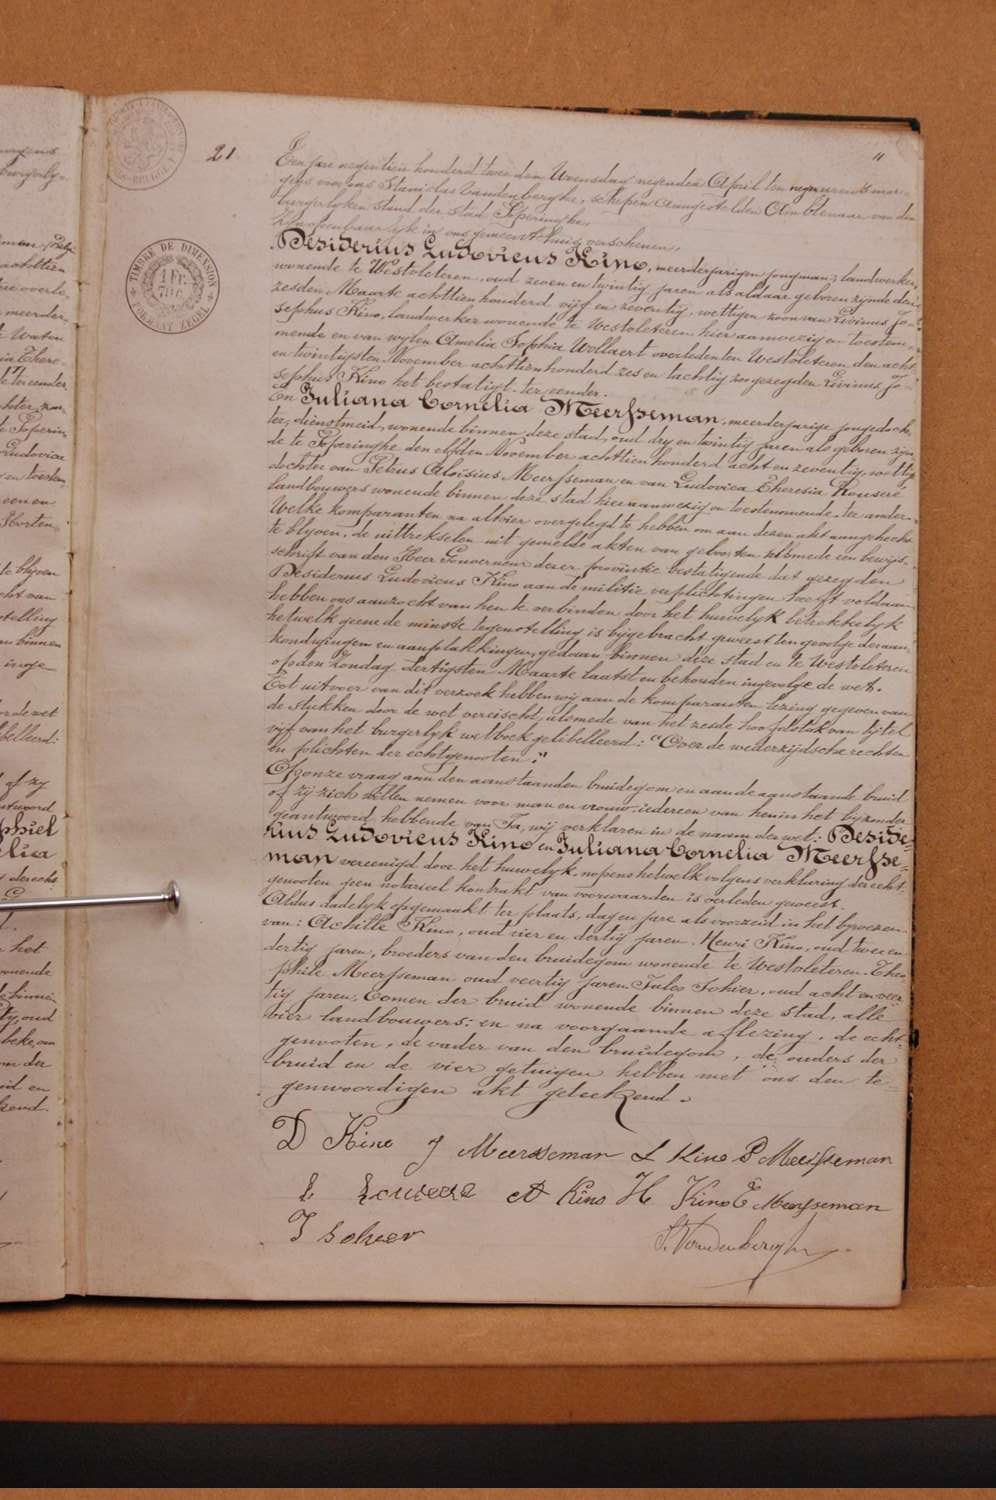 21
11
TIMBRE DE DIMENSION
1 FR.
FORMAAT ZEGEL
Een jare negentien honderd twee den Woensdag negenden April ten negen uren 's mor-
gens voor ons Stanislas Vandenberghe, schepen Aangestelden Ambtenaar van den
burgerlyken stand der stad Poperinghe,
zyn openbaarlyk in ons gemeentehuis verschenen,
Desiderius Ludovicus Kino, meerderjarigen jongman, landwerker,
wonende te Westvleteren, oud zeven en twintig jaren als aldaar geboren zynde den
zesden Maarte achttien honderd vyf en zeventig, wettigen zoon van Livinus Jo-
sephus Kino, landwerker wonende te Westvleteren hier aanwezig en toestem-
mende en van wylen Amelia Sophia Wollaert overleden ten Westvleteren den acht
en twintigsten November achttienhonderd zes en tachtig zoo gezegden Livinus Jo-
sephus Kino het bestatigt. ter eender.
En Juliana Cornelia Meersseman, meerderjarige jongedoch-
ter, dienstmeid, wonende binnen deze stad, oud dry en twintig jaren als geboren zyn-
de te Poperinghe den elfden November achttien honderd acht en zeventig, wettige
dochter van Petrus Aloïsius Meersseman en van Ludovica Theresia Rouseré
landbouwers wonende binnen deze stad hier aanwezig en toestemmende. ter ander.
Welke komparanten na alhier overgelegd te hebben om aan dezen akt aangehecht
te blyven, de uittrekselen uit gemelde akten van geboorten alsmede een bewys-
schrift van den Heer Gouverneur dezer provintie bestatigende dat gezegden
Desiderius Ludovicus Kino aan de militie verplichtingen heeft voldaan
hebben ons aanzocht van hen te verbinden door het huwelyk betrekkelyk
hetwelk geene de minste tegenstelling is bygebracht geweest ten gevolge der aan-
kondigingen en aanplakkingen, gedaan binnen deze stad en te Westvleteren
op den Zondag dertigsten Maarte laatst en behouden ingevolge de wet.
Tot uitvoer van dit verzoek hebben wy aan de komparanten lezing gegeven van
de stukken door de wet vereischt, alsmede van het zesde hoofdstuk van tytel
vyf van het burgerlyk wetboek gelibelleerd: "Over de wederzydsche rechten
en plichten der echtgenooten."
Op onze vraag aan den aanstaanden bruidegom en aan de aanstaande bruid
of zy zich willen nemen voor man en vrouw, iedereen van hen in het byzonder
geantwoord hebbende van Ja, wy verklaren in de naam der wet: Deside-
rius Ludovicus Kino en Juliana Cornelia Meersse-
man vereenigd door het huwelyk nopens hetwelk volgens verklaring der echt-
genooten geen notarieel kontrakt van voorwaarden is verleden geweest.
Aldus dadelyk opgemaakt ter plaats, dag en jare als voorzeid in het bywezen
van: Achille Kino, oud vier en dertig jaren. Henri Kino, oud twee en
dertig jaren, broeders van den bruidegom wonende te Westvleteren. Theo-
phile Meersseman oud veertig jaren Jules Sohier, oud acht en veer-
tig jaren, Oomen der bruid wonende binnen deze stad, alle
vier landbouwers: en na voorgaande aflezing, de echt-
genooten, de vader van den bruidegom, de ouders der
bruid en de vier getuigen hebben met ons den te-
genwoordigen akt geteekend.
D Kino J Meersseman L Kino P Meersseman
L Rousere A Kino H Kino T Meersseman
J Sohier
S. Vandenberghe